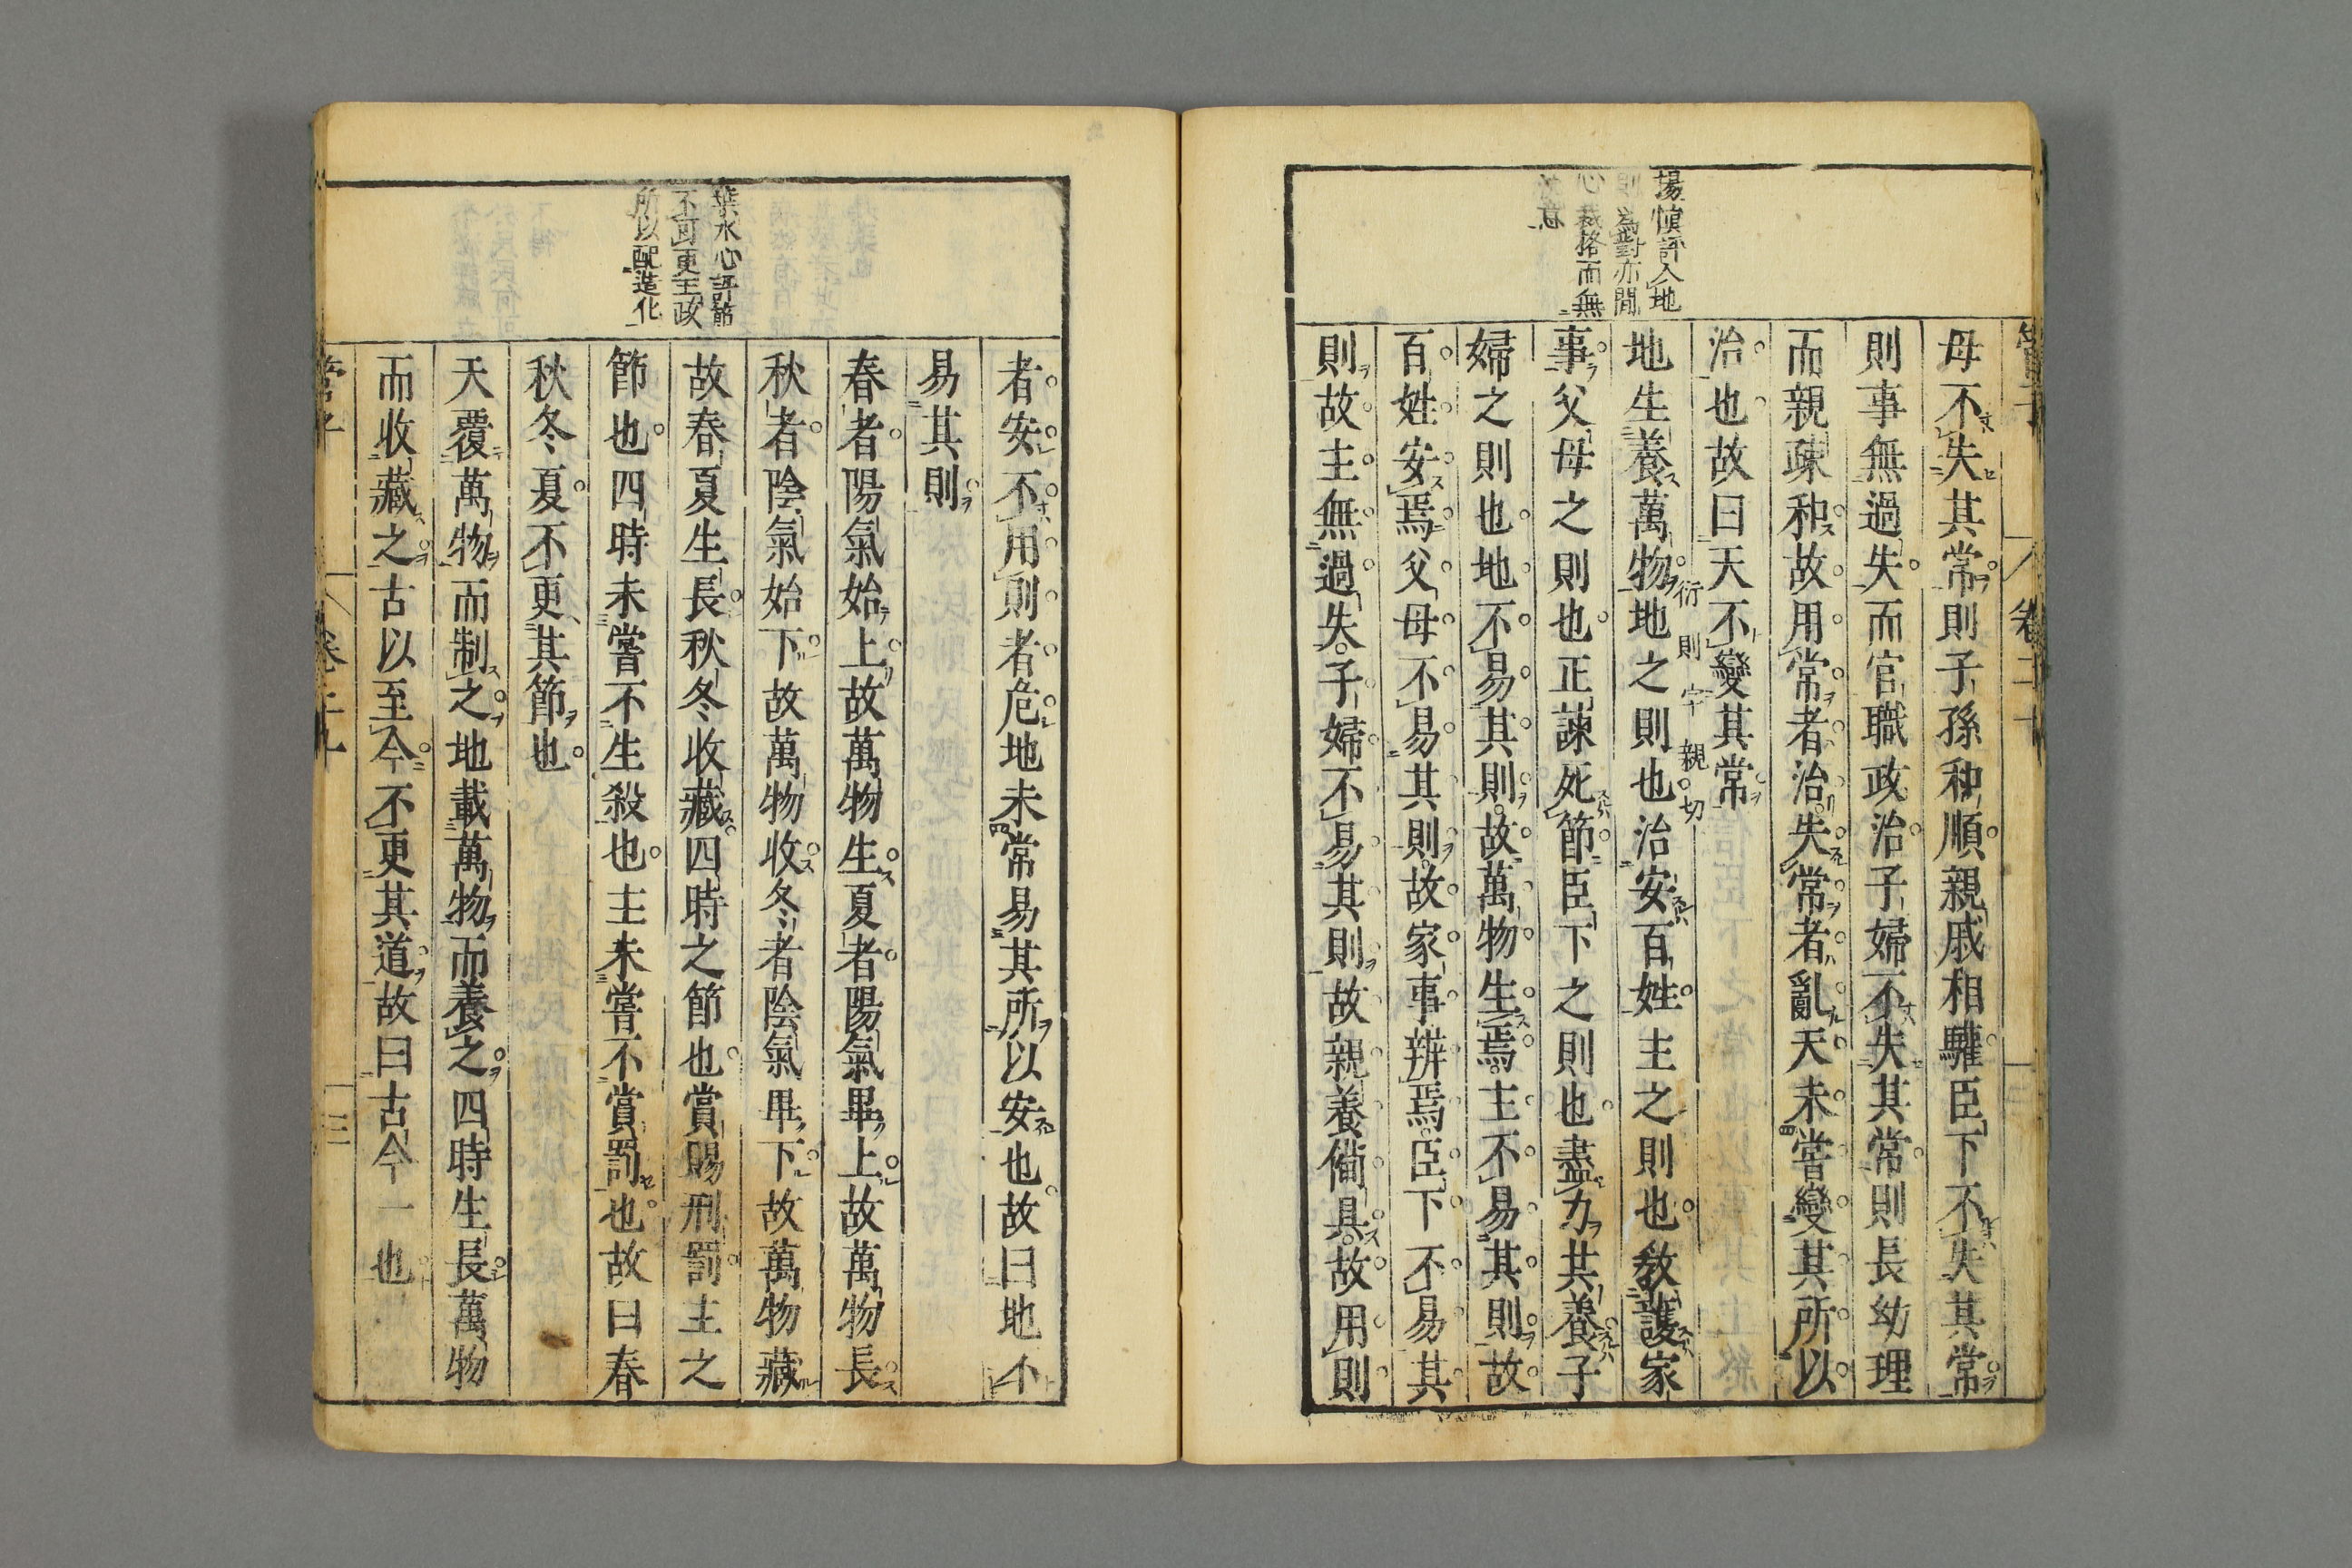 母不失其常則子孫和順親戚相驩臣下不失其常
則事無過失而官職政治子婦不失其常則長幼理
而親疎和故用常者治失常者亂天未嘗變其所以
治也故曰天不變其常
地生養萬物地之則也治安百姓主之則也教護家
衍則字 親切
事父母之則也正諫死節臣下之則也盡力共養子
婦之則也地不易其則故萬物生焉主不易其則故
百姓安焉父母不易其則故家事辨焉臣下不易其
則故主無過失子婦不易其則故親養備具故用則
者安不用則者危地未常易其所以安也故曰地不
易其則
春者陽氣始上故萬物生夏者陽氣畢上故萬物長
秋者陰氣始下故萬物收冬者陰氣畢下故萬物藏
故春夏生長秋冬收藏四時之節也賞賜刑罰主之
節也四時未嘗不生殺也主未嘗不賞罰也故曰春
秋冬夏不更其節也
天覆萬物而制之地載萬物而養之四時生長萬物
而收藏之古以至今不更其道故曰古今一也
楊慎評入地
為對亦間
心裁格而無
葉水心評節
不可更主政
所以配造化
管子
卷二十
管子
卷二十
三